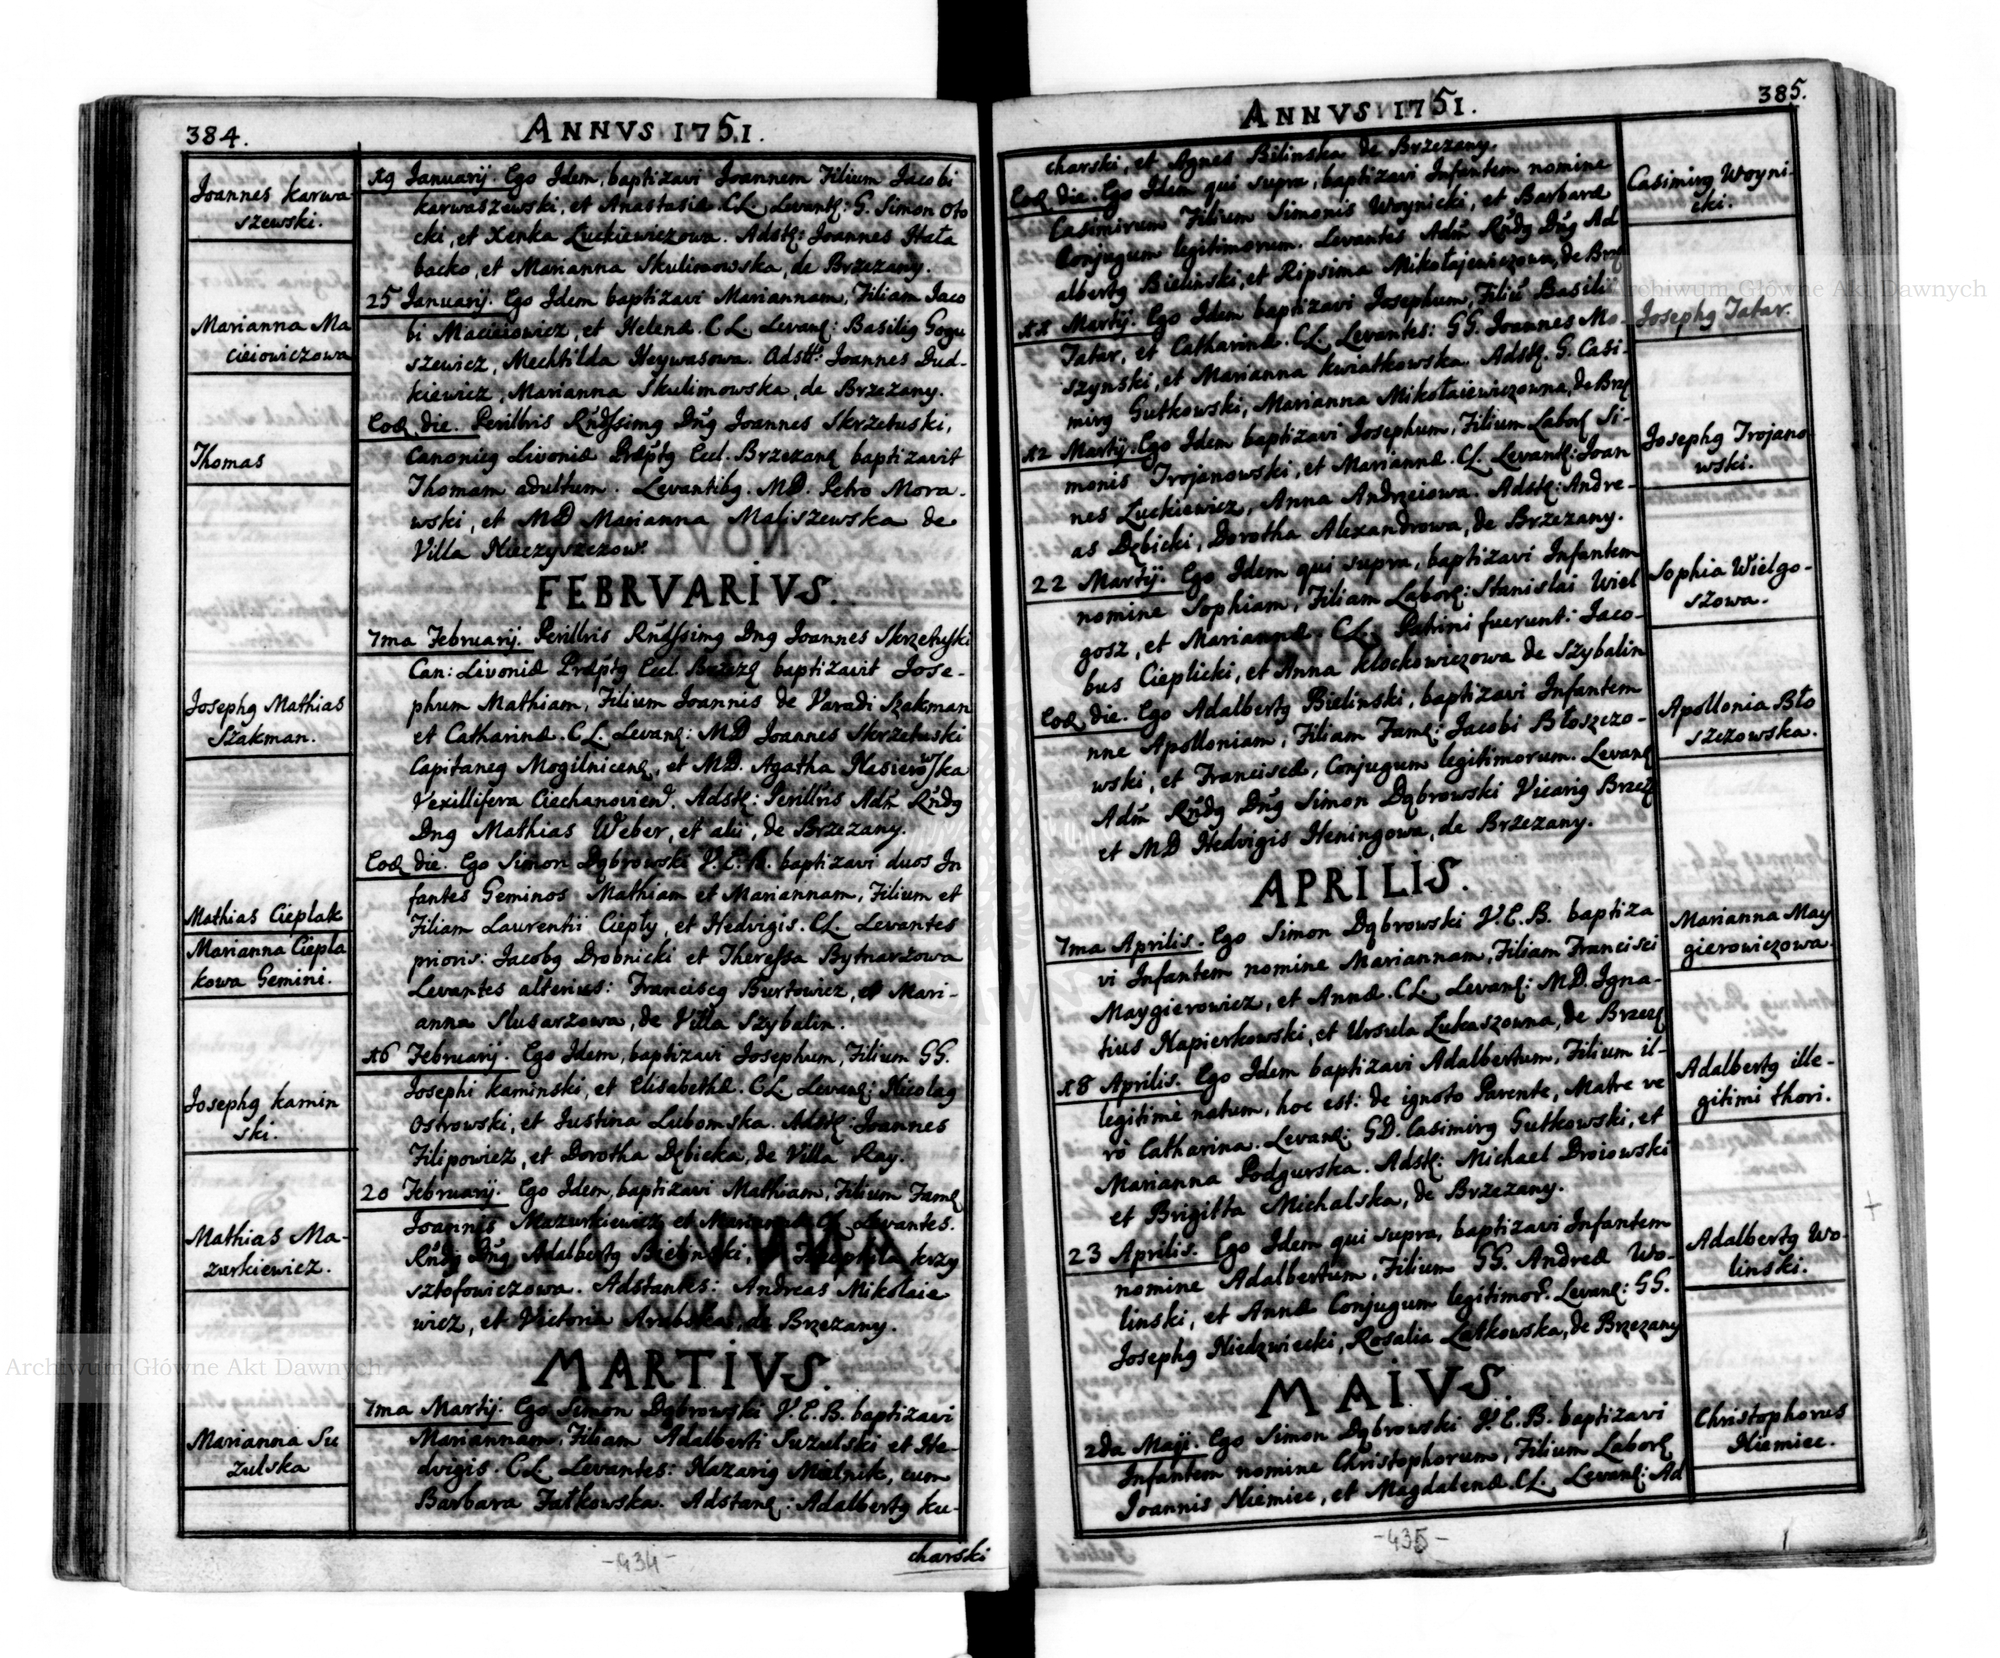 384.
ANNVS 1751.
Joannes Karwa
szewski.
19 Januarij. Ego Idem, baptizavi Joannem Filium Jacobi
Karwaszewski, et Anastasiæ. CL. Levant: G. Simon Oto
cki, et Xenka Luckiewiczowa. Adst: Joannes Hała
backo, et Marianna Skulimowska, de Brzezany.
Marianna Ma
cieiowiczowa
25 Januarij. Ego Idem baptizavi Mariannam, Filiam Jaco
bi Macieiowicz, et Helenæ. C L. Levan: Basilig Gogu
szewicz, Mechtilda Heywasowa. Adstt: Joannes Dud-
kiewicz, Marianna Skulimowska, de Brzezany.
Thomas
Eod. die. Perillris Rndssimg Dng Joannes Skrzetuski,
Canonicg Livoniæ Præptg Eccl. Brzezan baptizavit
Thomam adultum. Levantibg. MD. Petro Mora-
wski, et MD Marianna Maliszewska de
Villa Kuczyszczow.
FEBRVARIVS.
Josephg Mathias
Szakman.
7ma Februarij. Perillris Rndssimg Dng Joannes Skrzetuski
Can: Livoniæ Præptg Eccl. Brzez baptizavit Jose-
phum Mathiam, Filium Joannis de Varadi Szakman
et Catharinæ. C L. Levan: MD Joannes Skrzetuski
Capitaneg Mogilnicen, et MD. Agatha Kesierowska
Vexillifera Ciechanovien. Adst: Perillris Adm Rndg
Dng Mathias Weber, et alii, de Brzezany.
Mathias Cieplak
Marianna Ciepla
kowa Gemini.
Eod. die. Ego Simon Dąbrowski V. E. B. baptizavi duos In
fantes Geminos Mathiam et Mariannam, Filium et
Filiam Laurentii Ciepły, et Hedvigis. CL. Levantes
prioris: Jacobg Drobnicki et Theressa Bytnarzowa
Levantes alterius: Franciscg Burtowicz, et Mari-
anna Slusarzowa, de Villa Szybalin.
Josephg Kamin
ski.
16 Februarij. Ego Idem, baptizavi Josephum, Filium GG.
Josephi Kaminski, et Elisabethæ. CL Levan: Nicolag
Ostrowski, et Justina Lubomska. Adst: Joannes
Filipowicz, et Dorotha Dębicka, de Villa Ray.
Mathias Ma-
zurkiewicz.
20 Februarij. Ego Idem, baptizavi Mathiam, Filium Fam
Joannis Mazurkiewicz et Mariannæ CL Levantes.
Rndg Dng Adalbertg Bielinski, et Theophila Krzy
sztofowiczowa. Adstantes: Andreas Mikolaie
wicz, et Victoria Arabska, de Brzezany.
MARTIVS.
Marianna Su
zulska
7ma Martij. Ego Simon Dąbrowski V. E. B. baptizavi
Mariannam, Filiam Adalberti Suzulski et He-
dvigis. CL Levantes: Nazarig Mielnik, cum
Barbara Fałkowska. Adstan: Adalbertg Ku-
charski
-434-
385.
ANNVS 1751.
charski, et Agnes Bilinska de Brzezany.
Casimirg Woyni-
cki.
Eod. die. Ego Idem qui supra, baptizavi Infantem nomine
Casimirum Filium Simonis Woynicki, et Barbaræ
Conjugum legitimorum. Levantes Adm Rndg Dng Ad
albertg Bielinski, et Ripsima Mikołajewiczowa, de Brz
Josephg Tatar.
11 Martij. Ego Idem baptizavi Josephum, Filiu Basili
Tatar, et Catharinæ. CL. Levantes: GG. Joannes Mo-
szynski, et Marianna Kwiatkowska. Adst. G. Casi-
mirg Gutkowski, Marianna Mikołaiewiczowna, de Brz
Josephg Trojano
wski.
12 Martij. Ego Idem baptizavi Josephum, Filium Labor Si-
monis Trojanowski, et Mariannæ. CL. Levan: Joan
nes Luckiewicz, Anna Andrzeiowa. Adst: Andre-
as Dębicki, Dorotha Alexandrowa, de Brzezany.
Sophia Wielgo-
szowa.
22 Martij. Ego Idem qui supra, baptizavi Infantem
nomine Sophiam, Filiam Labor: Stanislai Wiel
gosz, et Mariannæ. CL. Patrini fuerunt: Jaco-
bus Cieplicki, et Anna Klockowiczowa de Szybalin
Apollonia Bło
szczowska.
Eod. die. Ego Adalbertg Bielinski, baptizavi Infantem
nne Apolloniam, Filiam Fam: Jacobi Błoszczo-
wski, et Franciscæ, Conjugum legitimorum. Levan
Adm Rndg Dng Simon Dąbrowski Vicarig Brzez
et MD Hedvigis Heningowa, de Brzezany.
APRILIS.
Marianna May
gierowiczowa.
7ma Aprilis. Ego Simon Dąbrowski V. E. B. baptiza
vi Infantem nomine Mariannam, Filiam Francisci
Maygierowicz, et Annæ. CL Levan: MD. Igna-
tius Napierkowski, et Ursula Lukaszowna, de Brzez
Adalbertg ille-
gitimi thori.
18 Aprilis. Ego Idem baptizavi Adalbertum, Filium il-
legitimè natum, hoc est: de ignoto Parente, Matre ve
rò Catharina. Levan: GD. Casimirg Gutkowski, et
Marianna Podgurska. Adst: Michael Droiowski
et Brigitta Michalska, de Brzezany.
Adalbertg Wo-
linski.
23 Aprilis. Ego Idem qui supra, baptizavi Infantem
nomine Adalbertum, Filium GG. Andreæ Wo-
linski, et Annæ Conjugum legitimor. Levan: GG.
Josephg Niedzwiecki, Rosalia Latkowska, de Brzezany
MAIVS.
Christophorus
Niemiec.
2da Maji. Ego Simon Dąbrowski V. E. B. baptizavi
Infantem nomine Christophorum, Filium Labor
Joannis Niemiec, et Magdalenæ. CL. Levan: Ad
-435-
Archiwum Główne Akt Dawnych
Archiwum Główne Akt Dawnych